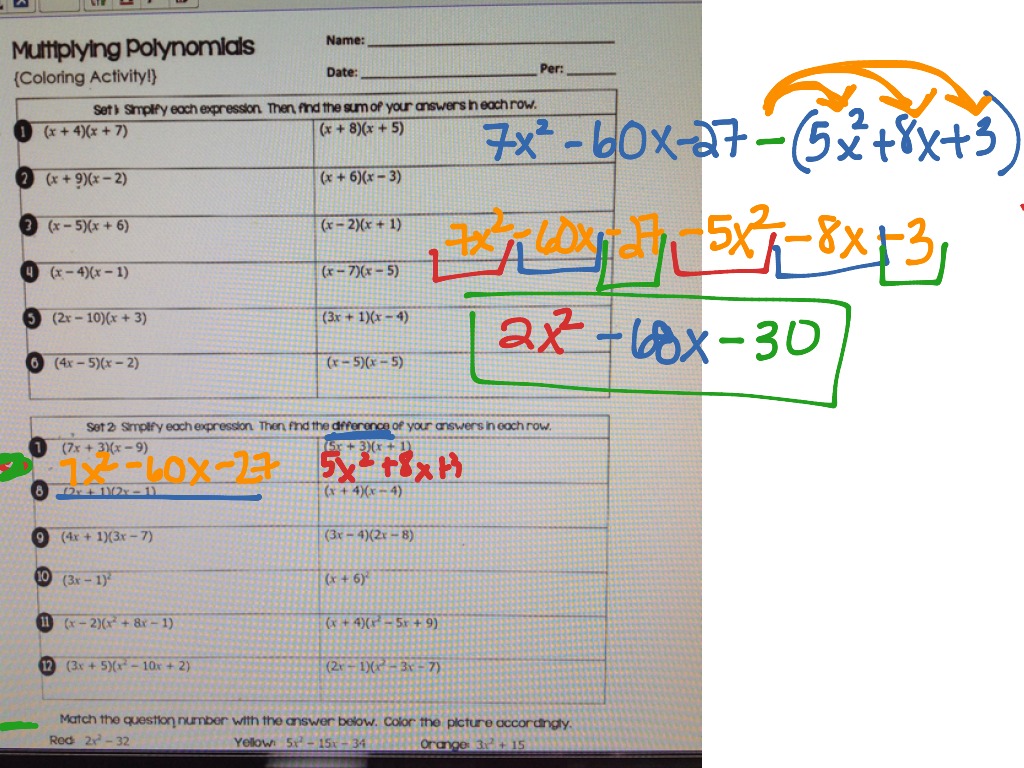 Multiplying Polynomials
{Coloring Activity!}
Name:
Date: Per:
Set 1: Simplify each expression. Then, find the sum of your answers in each row.
1 (x + 4)(x + 7) (x + 8)(x + 5)
2 (x + 9)(x – 2) (x + 6)(x – 3)
3 (x – 5)(x + 6) (x – 2)(x + 1)
4 (x – 4)(x – 1) (x – 7)(x – 5)
5 (2x – 10)(x + 3) (3x + 1)(x – 4)
6 (4x – 5)(x – 2) (x – 5)(x – 5)
7x² – 60x – 27 – (5x² + 8x + 3)
7x² – 60x – 27 – 5x² – 8x – 3
2x² – 68x – 30
Set 2: Simplify each expression. Then, find the difference of your answers in each row.
7 (7x + 3)(x – 9) (5x + 3)(x + 1)
7x² – 60x – 27 5x² + 8x + 3
8 (2x + 1)(2x – 1) (x + 4)(x – 4)
9 (4x + 1)(3x – 7) (3x – 4)(2x – 8)
10 (3x – 1)² (x + 6)²
11 (x – 2)(x² + 8x – 1) (x + 4)(x² – 5x + 9)
12 (3x + 5)(x² – 10x + 2) (2x – 1)(x² – 3x – 7)
Match the question number with the answer below. Color the picture accordingly.
Red: 2x² – 32 Yellow: 5x² – 15x – 34 Orange: 3x² + 15